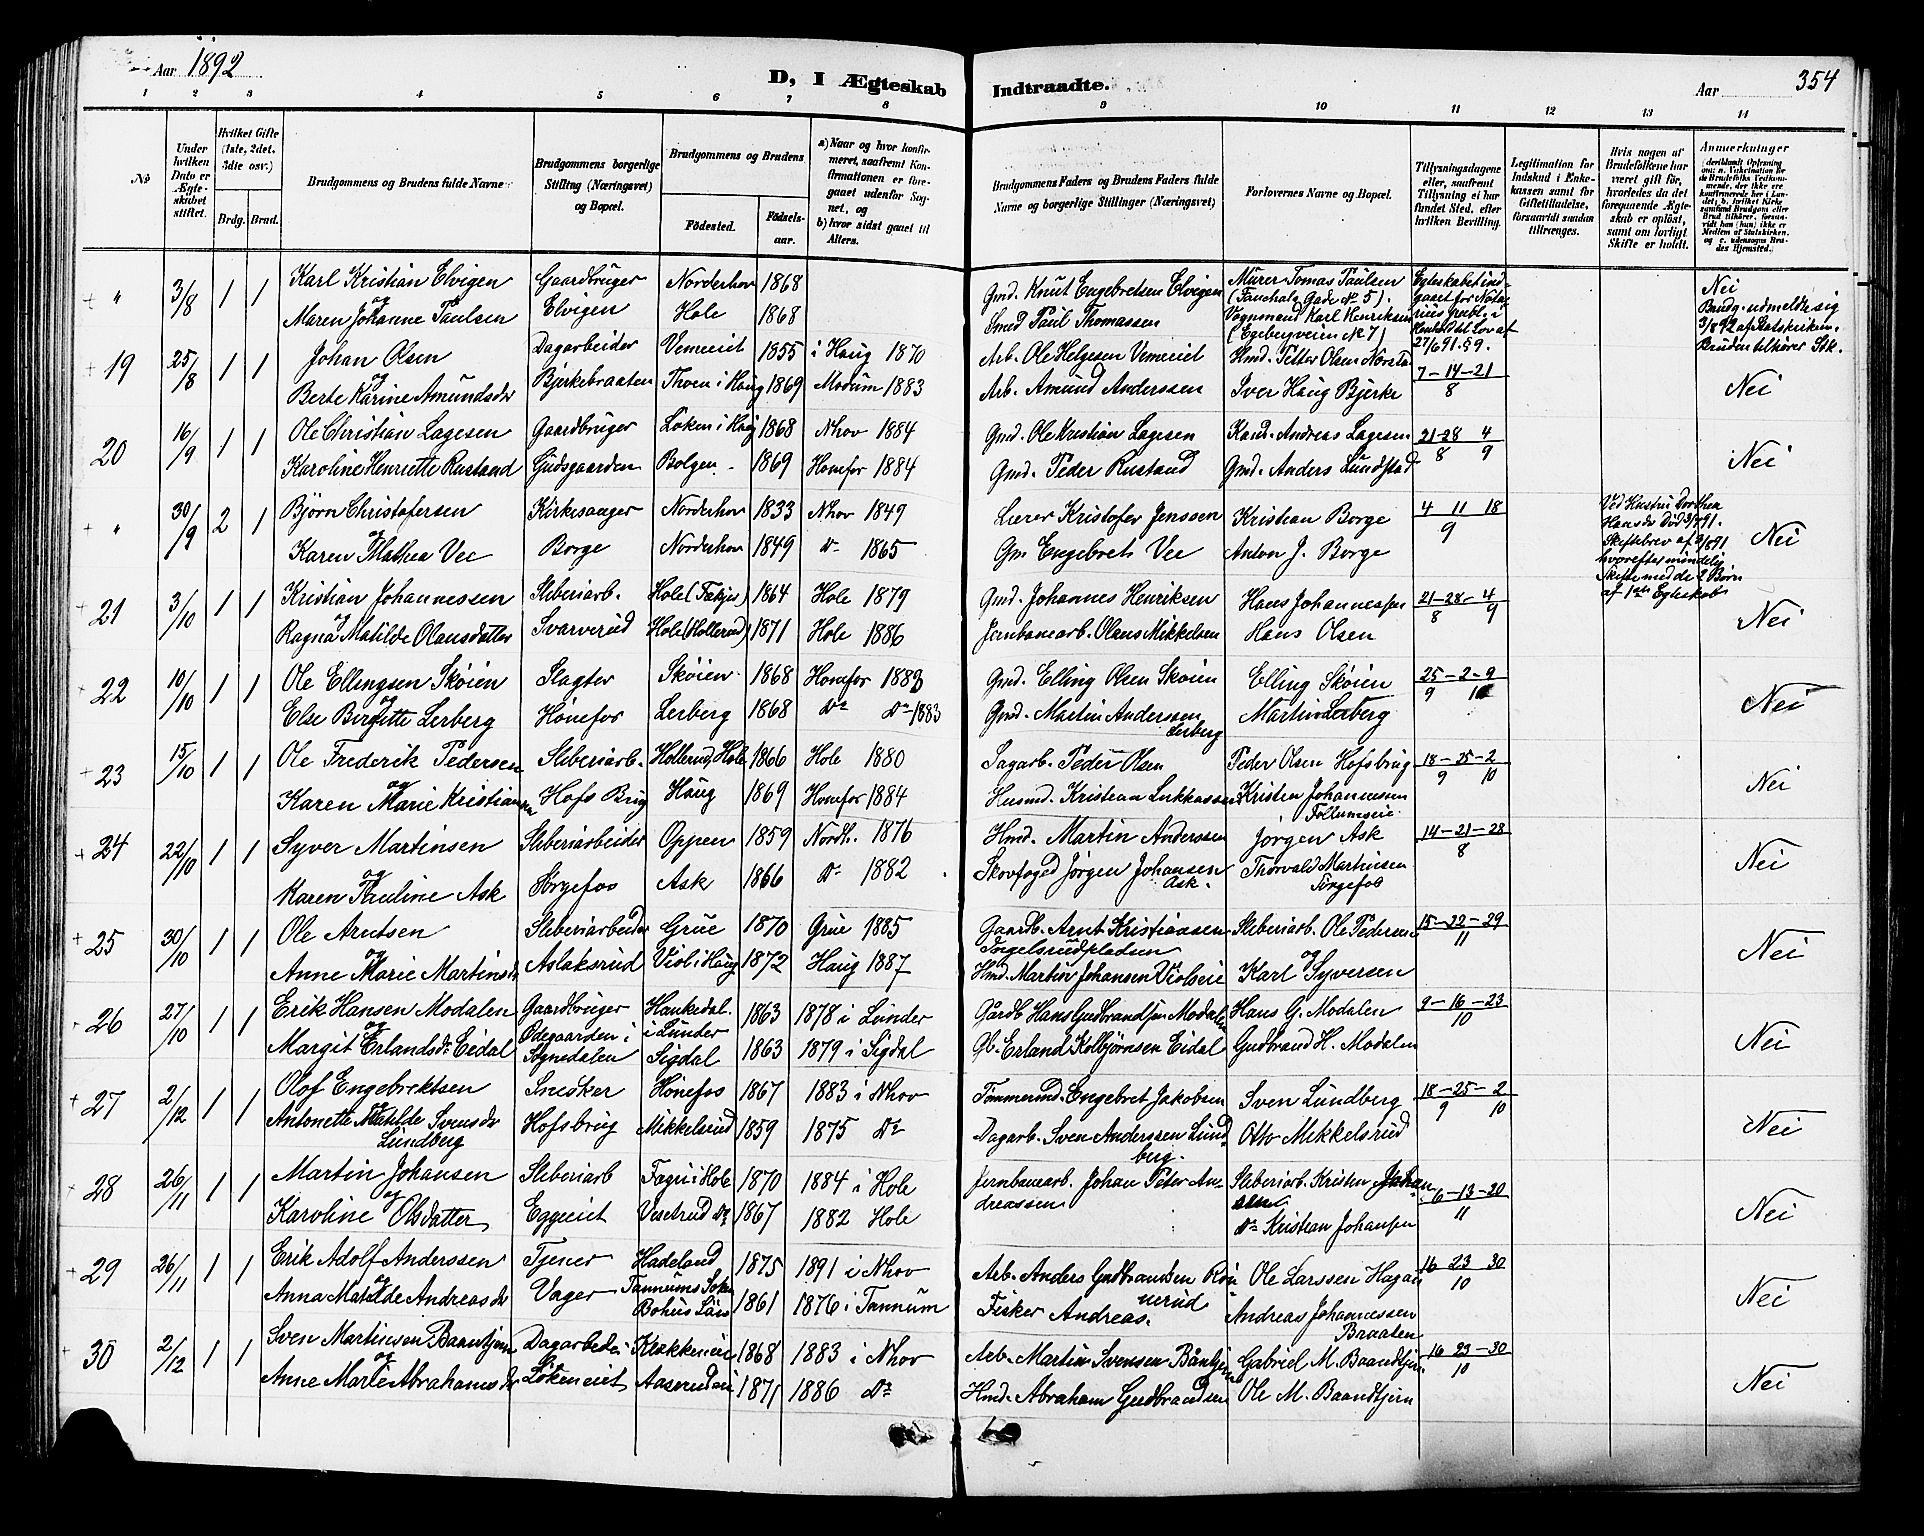 Aar 1892
D, I Ægteskab Indtraadte.
Aar
354
1 2 3 4 5 6 7 8 9 10 11 12 13 14
No
Under hvilken Dato er Ægteskabet stiftet.
Hvilket Gifte (1ste, 2det, 3dte osv.)
Brdg. Brud.
Brudgommens og Brudens fulde Navne
Brudgommens borgerlige Stilling (Næringsvei) og Bopæl.
Brudgommens og Brudens
Fødested. Fødselsaar.
a) Naar og hvor konfirmeret, saafremt Konfirmationen er foregaaet udenfor Sognet, og
b) hvor sidst gaaet til Alters.
Brudgommens Faders og Brudens Faders fulde Navne og borgerlige Stillinger (Næringsvei)
Forlovernes Navne og Bopæl.
Tillysningsdagene eller, saafremt Tillysning ei har fundet Sted, efter hvilken Bevilling.
Legitimation for Indskud i Enkekassen samt for Giftetilladelse, forsaavidt saadan tiltrænges.
Hvis nogen af Brudefolkene har været gift før, hvorledes da det foregaaende Ægteskab er opløst, samt om lovligt Skifte er holdt.
Anmærkninger
" 3/8 1 1 Karl Kristian Elvigen Gaardbruger Norderhov 1868 Gmd. Knut Engebretsen Elvigen Murer Tomas Paulsen
og (Fauchals Gade No 5).
Maren Johanne Paulsen Elvigen Hole 1868 Smed Paul Thomassen Vognmand Karl Henriksen
(Egebergveien No 7)
Egteskabet indgaaet for Notarius publ. i Henhold til Lov af 27/6 91. §9.
Nei
Brudg. udmeldte sig 3/8 92 af Statskirken. Bruden tilhører Stk.
19 25/8 1 1 Johan Olsen Dagarbeider Vemeiet 1855 i Haug 1870 Arb. Ole Helgesen Vemeiet Hmd. Petter Olsen Norsta
og
Berte Karine Amundsdr Bjerkebraaten Thoen i Haug 1869 Modum 1883 Arb. Amund Anderssen Iver Haug Bjerke 7-14-21 / 8 Nei
20 16/9 1 1 Ole Christian Lagesen Gaardbruger Løken i Haug 1868 Nhov 1884 Gmd. Ole Kristian Lagesen Kand. Andreas Lagesen 21-28 4 / 8 9
Karoline Henriette Rustand Gudsgaarden Bolgen - 1869 Hønefos 1884 Gmd. Peder Rustand Gmd. Anders Lundstad Nei
" 30/9 2 1 Bjørn Christofersen Kirkesanger Norderhov 1833 Nhov 1849 Lærer Kristofer Jenssen Kristian Borge 4 11 18 / 9
og
Karen Mathea Vee Borge Norderhov 1849 Do 1865 Gm Engebret Vee Anton J. Borge Nei
Ved Hustru Dorthea Hansdr Død 3/8 91. Skiftebrev af 9/8 91 hvorefter mindelig Skifte med de 2 Børn af 1ste Egteskab
21 3/10 1 1 Kristian Johannessen Sliberiarb. Hole (Fækjer) 1864 Hole 1879 Gmd. Johannes Henriksen Hans Johannessen 21-28-4 / 8 9
og
Ragna Matilde Olausdatter Svarverud Hole (Hollerud) 1871 Hole 1886 Jernbanearb. Olaus Mikkelsen Hans Olsen Nei
22 10/10 1 1 Ole Ellingsen Skøien Slagter Skøien 1868 Hønefos 1883 Gmd. Elling Olsen Skøien Elling Skøien 25-2-9 / 9 10
og
Else Birgitte Lerberg Hønefos Lerberg 1868 Do Do 1883 Gmd. Martin Anderssen Lerberg Martin Lerberg Nei
23 15/10 1 1 Ole Frederik Pedersen Sliberiarb. Hollerud, Hole 1866 Hole 1880 Sagarb. Peder Olsen Peder Olsen Hofsbrug 18-25-2 / 9 10
og
Karen Marie Kristiansdr Hofs Brug Haug 1869 Hønefos 1884 Husmd. Kristian Lukkassen Kristen Johannesen Follumseie. Nei
24 22/10 1 1 Syver Martinsen Sliberiarbeider Oppen 1859 Nordh. 1876 Hmd. Martin Anderssen Jørgen Ask 14-21-28 / 8
og
Karen Pauline Ask Sørgefos Ask 1866 Do 1882 Skovfoged Jørgen Johansen Ask. Thorvald Martinsen Sørgefos Nei
25 30/10 1 1 Ole Arntsen Sliberiarbeider Grue 1870 Grue 1885 Gaardb. Arnt Kristiansen Ingelsrudpladsen Sliberiarb. Ole Pedersen 15-22-29 / 11
og
Anne Marie Martinsdr Aslaksrud Viol i Haug 1872 Haug 1887 Hmd. Martin Johansen Violseie Karl Syversen Nei
26 27/10 1 1 Erik Hansen Modalen Gaardbruger Haukedal. i Lunder 1863 1878 i Lunder Gårdb Hans Gudbrandsen Modalen Hans G. Modalen 9-16-23 / 10
og
Margit Erlandsdr Eidal Ødegaarden i Sognedalen Sigdal 1863 1879 i Sigdal Gb. Erland Kolbjørnsen Eidal Gudbrand H. Modalen Nei
27 2/12 1 1 Olof Engebrektsen Snedker Hønefos 1867 1883 i Nhov Tømmermd. Engebret Jakobsen Sven Lundberg 18-25-2 / 9 10
og
Antonette Matilde Svensdr Lundberg Hofsbrug Mikkelsrud 1859 1875 Do Dagarb. Sven Anderssen Lundberg. Otto Mikkelsrud Nei
28 26/11 1 1 Martin Johansen Sliberiarb Fagri i Hole 1870 1884 i Hole Jernbanearb. Johan Peter Andreassen Sliberiarb. Kristen Johansen 6-13-20 / 11
og
Karoline Olsdatter Eggeeiet Vesetrud Do 1867 1882 Hole Do Kristian Johansen Nei
29 26/11 1 1 Erik Adolf Anderssen Tjener Hadeland 1875 1891 i Nhov Arb. Anders Gudbrandsen Rønnerud Ole Larssen Hagan 16 23 30 / 10
og
Anna Matilde Andreasdr Vager Tannums Sokn Bohus Län 1861 1876 i Tannum Fisker Andreas. Andreas Johannessen Braaten Nei
30 2/12 1 1 Sven Martinsen Baantjern Dagarbeder Klækkeneie 1868 1883 i Nhov Arb. Martin Svensen Båntjern Gabriel M. Baandtjern 16 23-30 / 10
og
Anne Marie Abrahamsdr Løkeneiet Aaserudeie 1871 1886 Do Hmd. Abraham Gudbrandsen Ole M. Baandtjern Nei